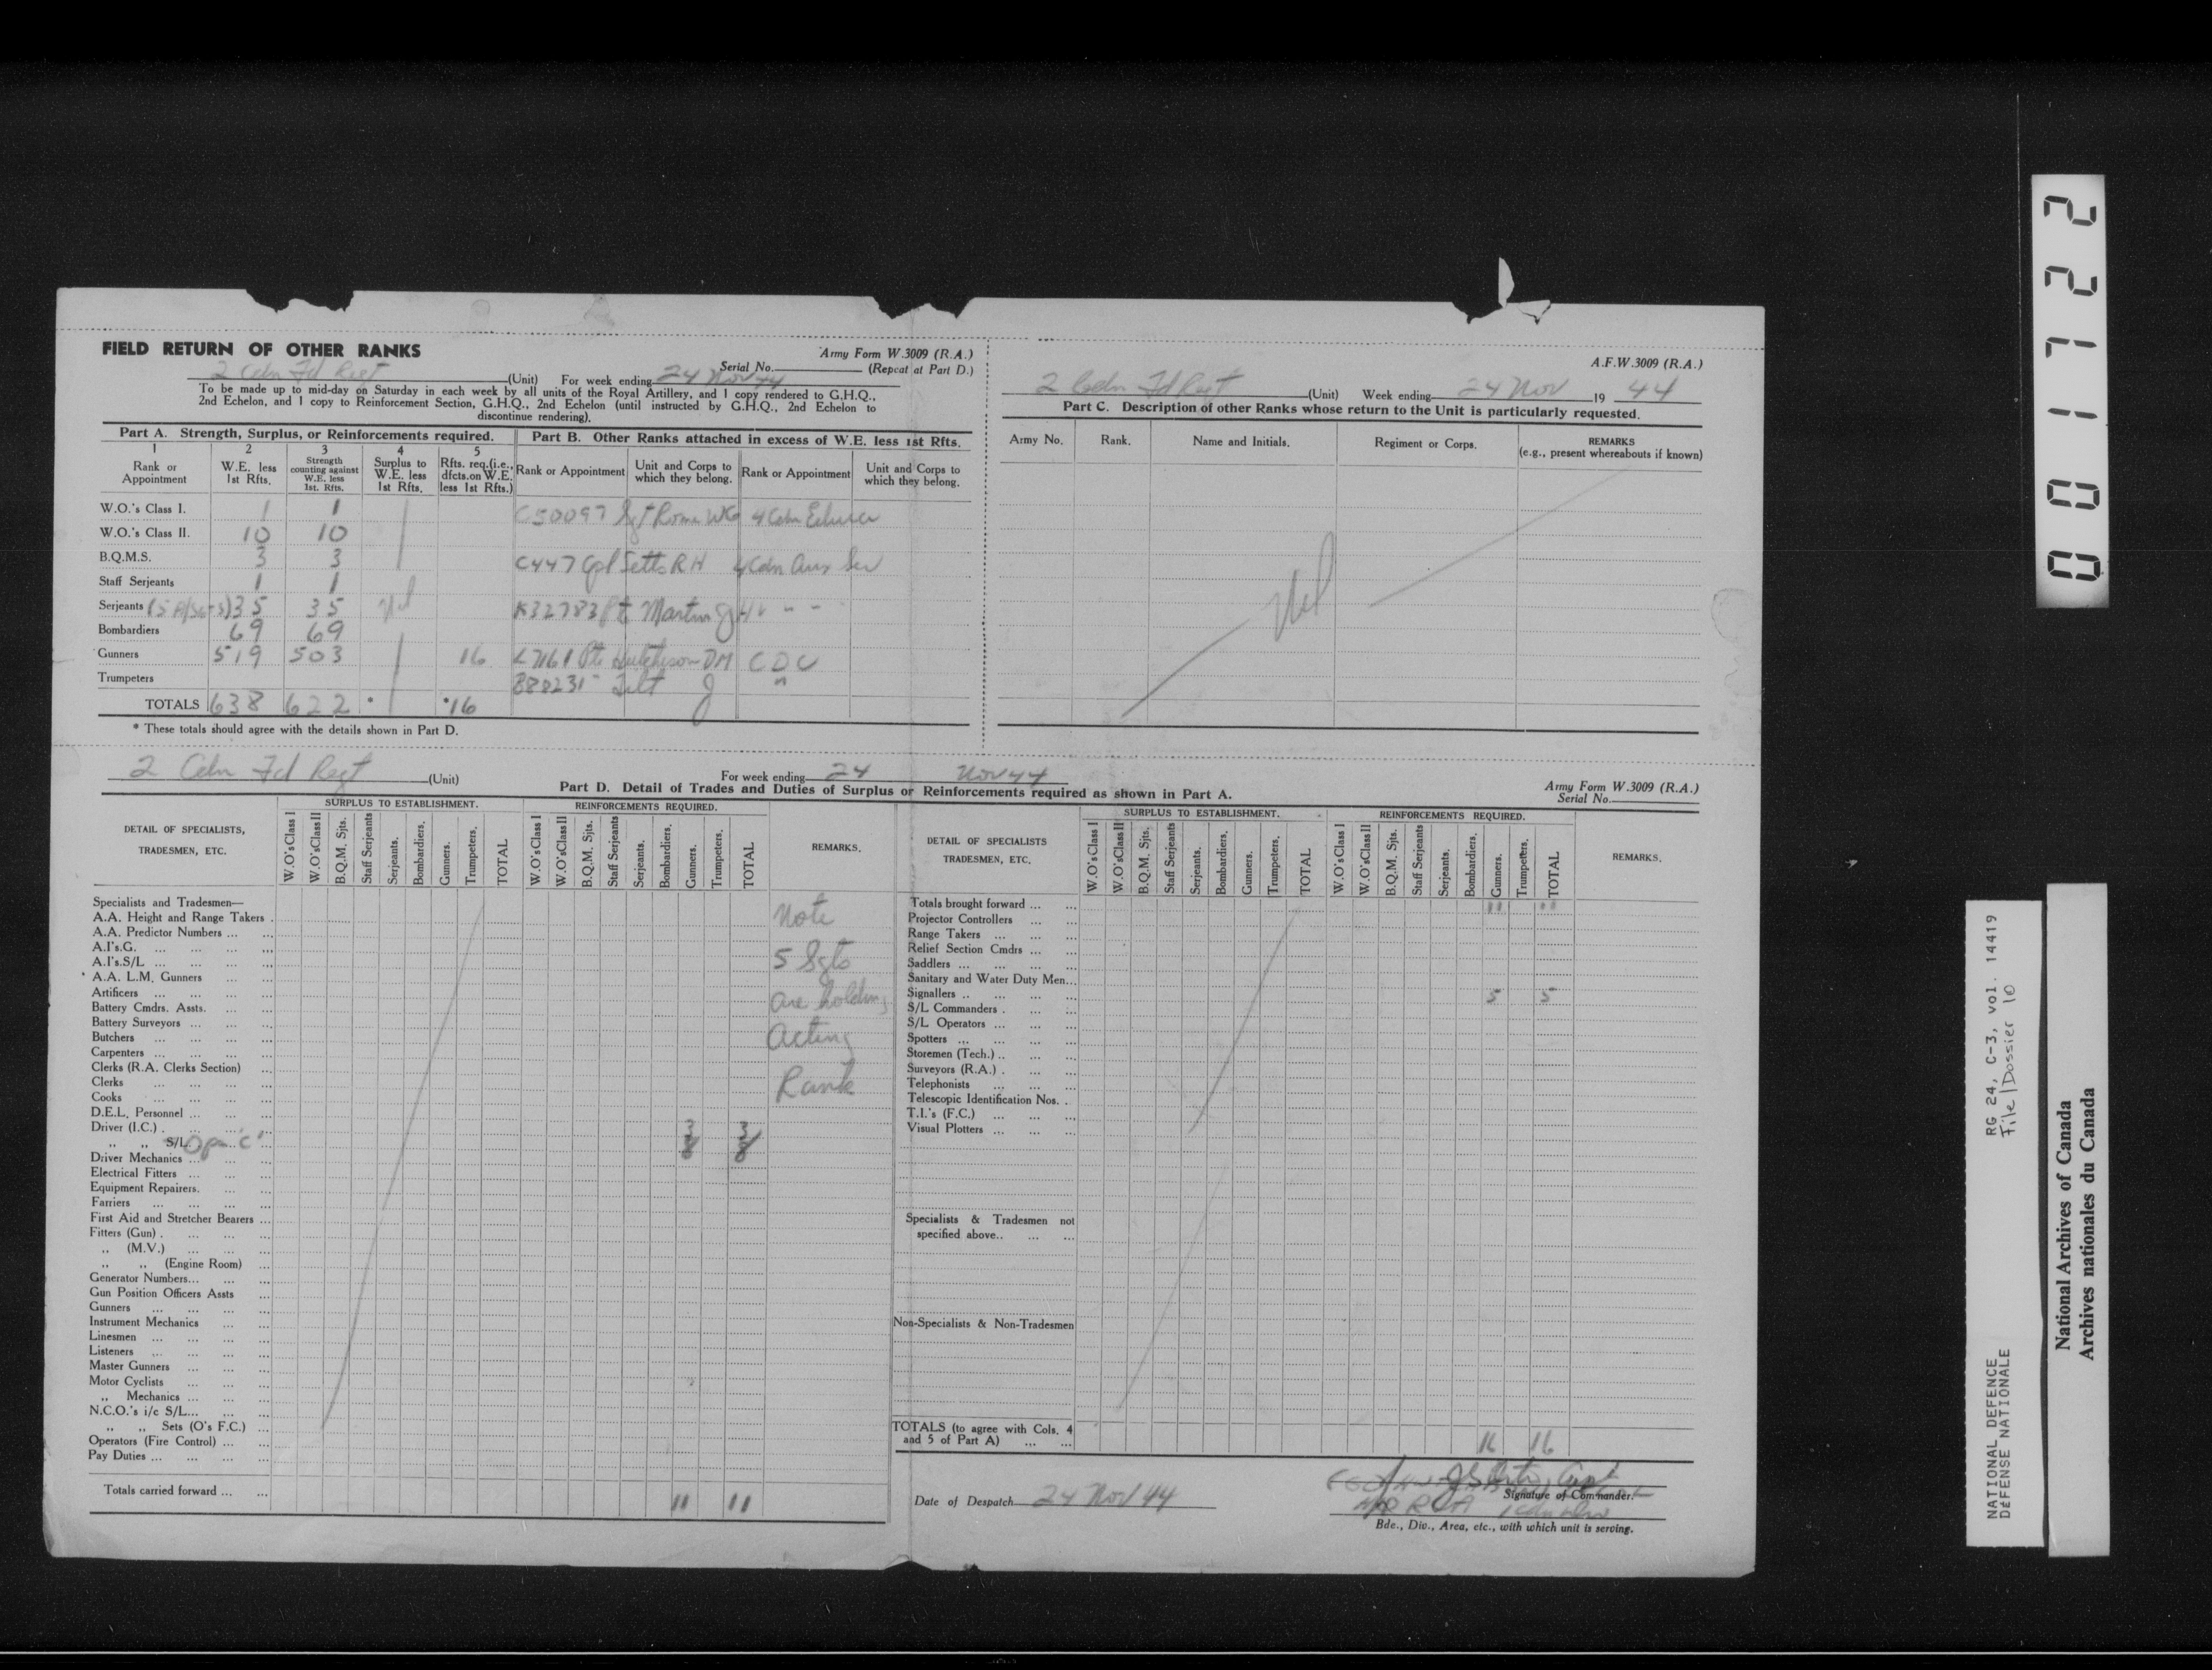 FIELD RETURN OF OTHER RANKS
Army Form W.3009 (R.A.)
Serial No. (Repeat at Part D.)
2 Cdn Fd Regt (Unit) For week ending 24 Nov 44
To be made up to mid-day on Saturday in each week by all units of the Royal Artillery, and 1 copy rendered to G.H.Q.,
2nd Echelon, and 1 copy to Reinforcement Section, G.H.Q., 2nd Echelon (until instructed by G.H.Q., 2nd Echelon to
discontinue rendering).
Part A. Strength, Surplus, or Reinforcements required.
1 2 3 4 5
Rank or Appointment
W.E. less 1st Rfts.
Strength counting against W.E. less 1st. Rfts.
Surplus to W.E. less 1st Rfts.
Rfts. req.(i.e., dfcts.on W.E. less 1st Rfts.)
W.O.'s Class I. 1 1
W.O.'s Class II. 10 10
B.Q.M.S. 3 3
Staff Serjeants 1 1
Serjeants 35 35 Nil
Bombardiers 69 69
Gunners 519 503 16
Trumpeters
TOTALS 638 622 * *16
* These totals should agree with the details shown in Part D.
Part B. Other Ranks attached in excess of W.E. less 1st Rfts.
Rank or Appointment
Unit and Corps to which they belong.
Rank or Appointment
Unit and Corps to which they belong.
C50097 Sgt 4 Cdn
C447 Cpl RH 4 Cdn Aux Ser
K32783 Pte Martin J 4 " "
Pte Hutcheson DM CDC
J "
A.F.W.3009 (R.A.)
2 Cdn Fd Regt (Unit) Week ending 24 Nov 19 44
Part C. Description of other Ranks whose return to the Unit is particularly requested.
Army No. Rank. Name and Initials. Regiment or Corps. REMARKS
(e.g., present whereabouts if known)
Nil
2 Cdn Fd Regt (Unit) For week ending 24 Nov 44
Part D. Detail of Trades and Duties of Surplus or Reinforcements required as shown in Part A.
Army Form W.3009 (R.A.)
Serial No.
DETAIL OF SPECIALISTS,
TRADESMEN, ETC.
SURPLUS TO ESTABLISHMENT.
W.O's Class I
W.O's Class II
B.Q.M. Sjts.
Staff Serjeants
Serjeants.
Bombardiers.
Gunners.
Trumpeters.
TOTAL
REINFORCEMENTS REQUIRED.
W.O's Class I
W.O's Class II
B.Q.M. Sjts.
Staff Serjeants
Serjeants.
Bombardiers.
Gunners.
Trumpeters.
TOTAL
REMARKS.
Specialists and Tradesmen—
A.A. Height and Range Takers
A.A. Predictor Numbers
A.I's.G.
A.I's.S/L
A.A. L.M. Gunners
Artificers
Battery Cmdrs. Assts.
Battery Surveyors
Butchers
Carpenters
Clerks (R.A. Clerks Section)
Clerks
Cooks
D.E.L. Personnel
Driver (I.C.) 3 3
,, ,, S/L Opr. 'C' 8 8
Driver Mechanics
Electrical Fitters
Equipment Repairers.
Farriers
First Aid and Stretcher Bearers
Fitters (Gun)
,, (M.V.)
,, ,, (Engine Room)
Generator Numbers
Gun Position Officers Assts
Gunners
Instrument Mechanics
Linesmen
Listeners
Master Gunners
Motor Cyclists
,, Mechanics
N.C.O.'s i/c S/L
,, ,, Sets (O's F.C.)
Operators (Fire Control)
Pay Duties
Totals carried forward 11 11
Note
5 Sgts
are holding
Acting
Rank
DETAIL OF SPECIALISTS
TRADESMEN, ETC.
SURPLUS TO ESTABLISHMENT.
W.O's Class I
W.O's Class II
B.Q.M. Sjts.
Staff Serjeants
Serjeants.
Bombardiers.
Gunners.
Trumpeters.
TOTAL
REINFORCEMENTS REQUIRED.
W.O's Class I
W.O's Class II
B.Q.M. Sjts.
Staff Serjeants
Serjeants.
Bombardiers.
Gunners.
Trumpeters.
TOTAL
REMARKS.
Totals brought forward 11 11
Projector Controllers
Range Takers
Relief Section Cmdrs
Saddlers
Sanitary and Water Duty Men
Signallers 5 5
S/L Commanders
S/L Operators
Spotters
Storemen (Tech.)
Surveyors (R.A.)
Telephonists
Telescopic Identification Nos.
T.I.'s (F.C.)
Visual Plotters
Specialists & Tradesmen not
specified above
Non-Specialists & Non-Tradesmen
TOTALS (to agree with Cols. 4
and 5 of Part A) 16 16
Date of Despatch 24 Nov 44
Capt
Signature of Commander.
RCA
Bde., Div., Area, etc., with which unit is serving.
001722
RG 24, C-3, vol. 14419
File/Dossier 10
NATIONAL DEFENCE
DEFENSE NATIONALE
National Archives of Canada
Archives nationales du Canada